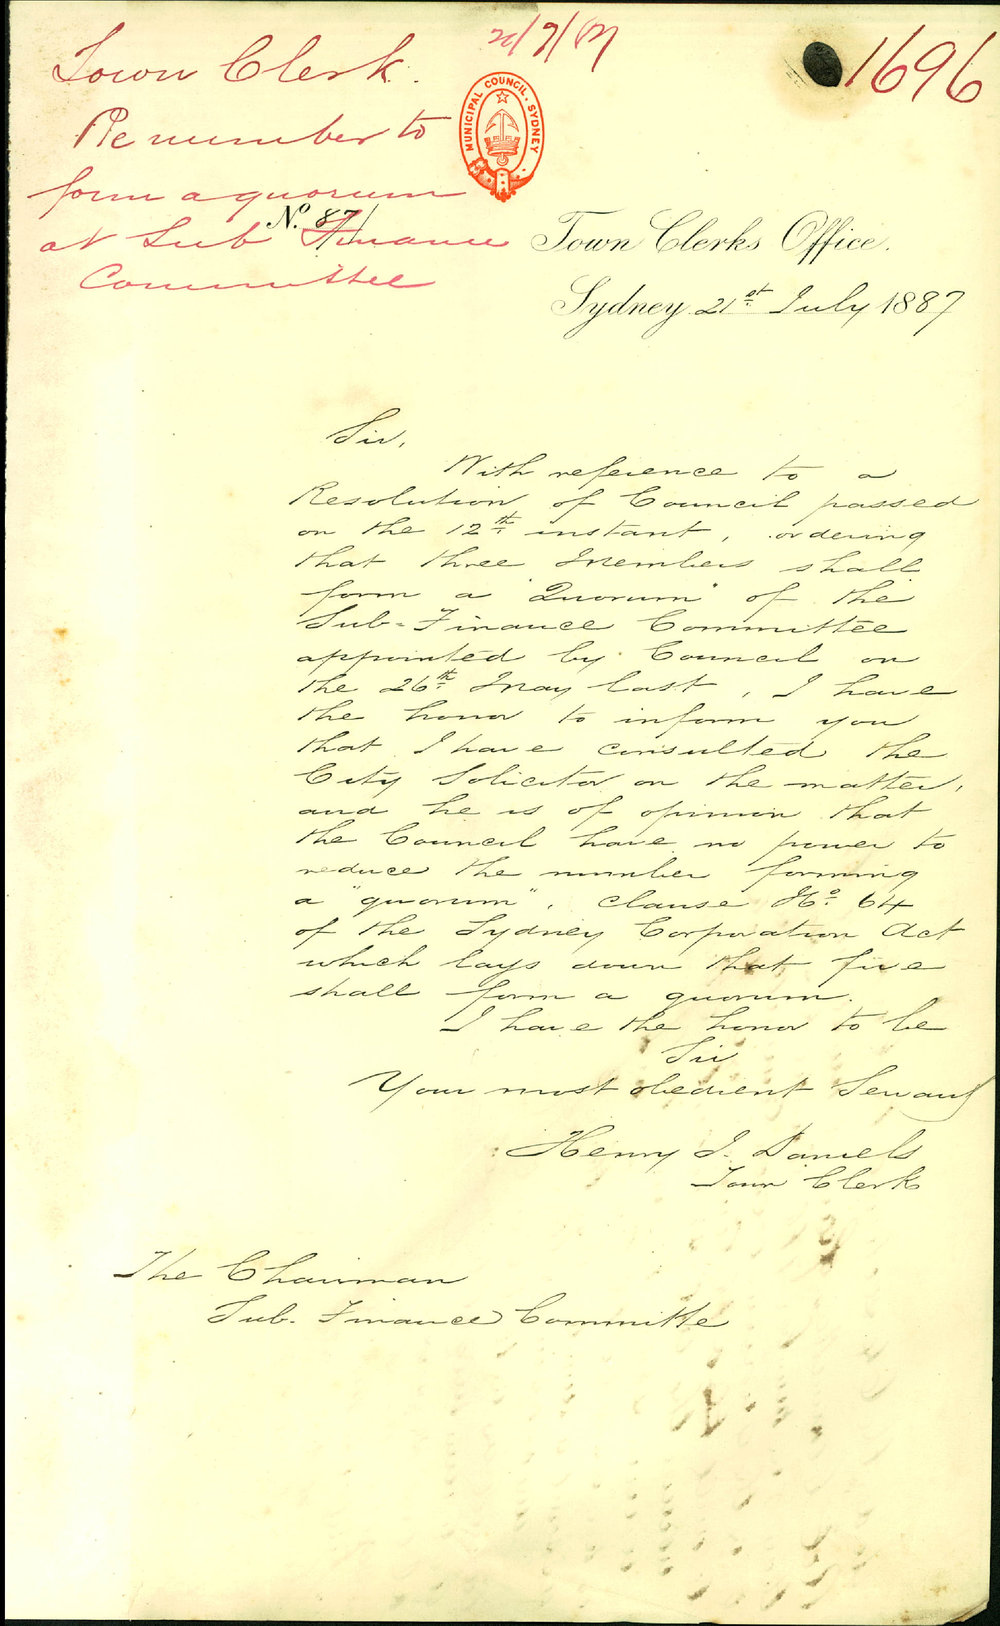 1696
Town Clerk.
Re number to
form a quorum
at Sub Finance
Committee
MUNICIPAL COUNCIL. SYDNEY
No. 87/
Town Clerks Office.
Sydney 21st July 1887
Sir,
With reference to a
Resolution of Council passed
on the 12th instant, ordering
that three Members shall
form a "Quorum" of the
Sub-Finance Committee
appointed by Council on
the 26th May last, I have
the honor to inform you
that I have consulted the
City Solicitor on the matter,
and he is of opinion that
the Council have no power to
reduce the number forming
a "quorum", clause No. 64
of the Sydney Corporation Act
which lays down that five
shall form a quorum.
I have the honor to be
Sir
Your most obedient Servant
Henry J. Daniels
Town Clerk
The Chairman
Sub. Finance Committee